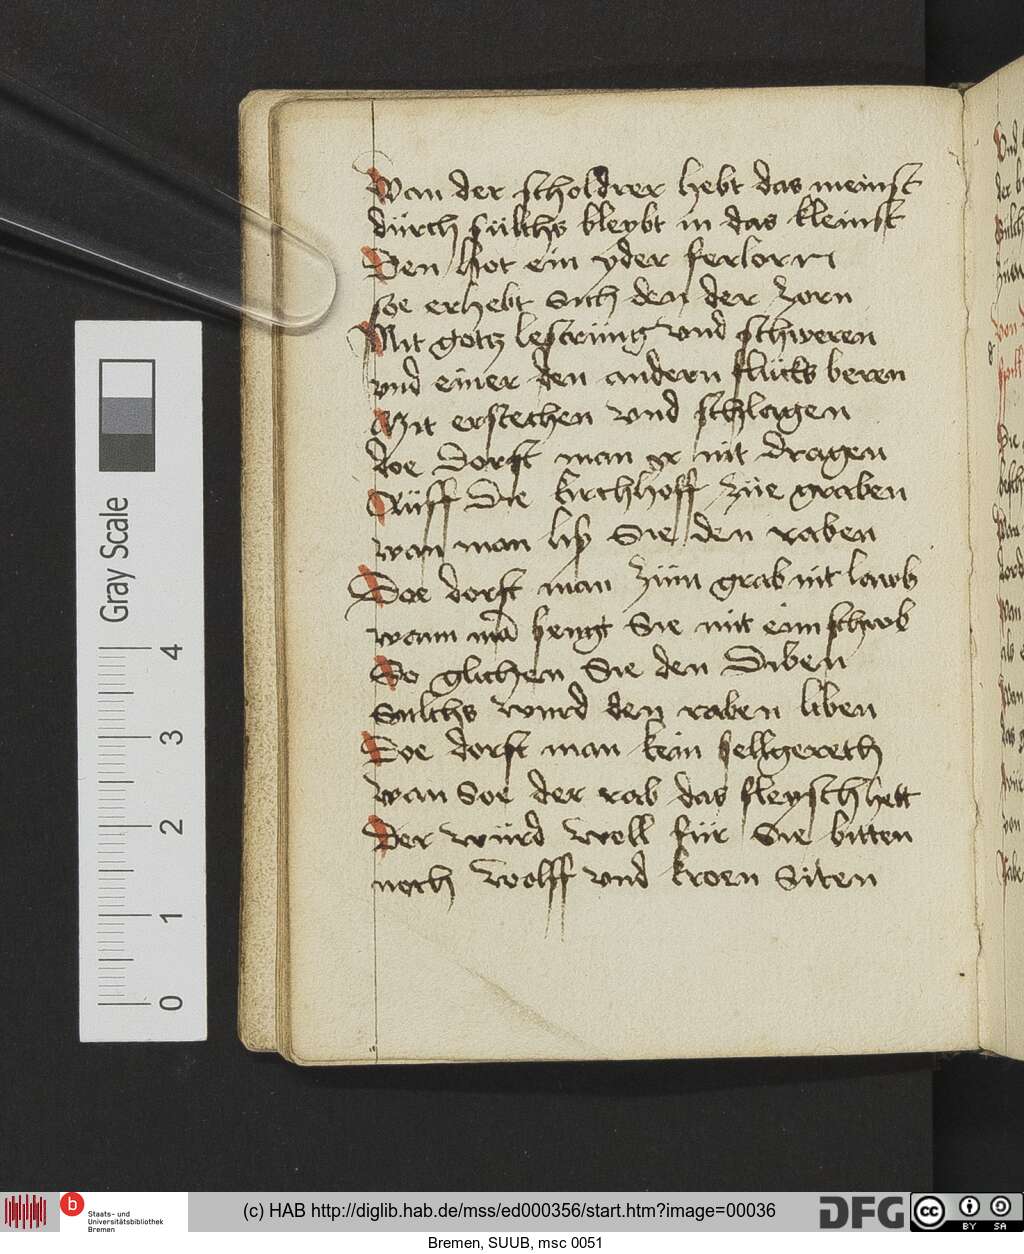 Wan der scholdrer hebt das meinst
dürch sülchs bleybt in das kleinst
Den hot ein yder ferlorn
soe erhebt Sich den der zorn
Mit gotz lestrüng vnd schweren
vnd einer den andern flücks beren
Mit erstechen vnd schlagen
doe dorft man er nit dragen
Aüff Die kirchhoff züe graben
wan man liss Sie den raben
Doe dorft man züm grab nit lawb
wann mā heng Sie mit eim schawb
So glichen Sie den Diben
Sulchs wurd den raben liben
Doe dorft man kein sellgereth
wan Soe der rab das fleysch hett
Der würd woll für Sie bitten
noch wolff vnd kroen Siten
Gray Scale
4
3
2
1
0
b
Staats- und
Universitätsbibliothek
Bremen
(c) HAB http://diglib.hab.de/mss/ed000356/start.htm?image=00036
DFG
cc
BY SA
Bremen, SUUB, msc 0051